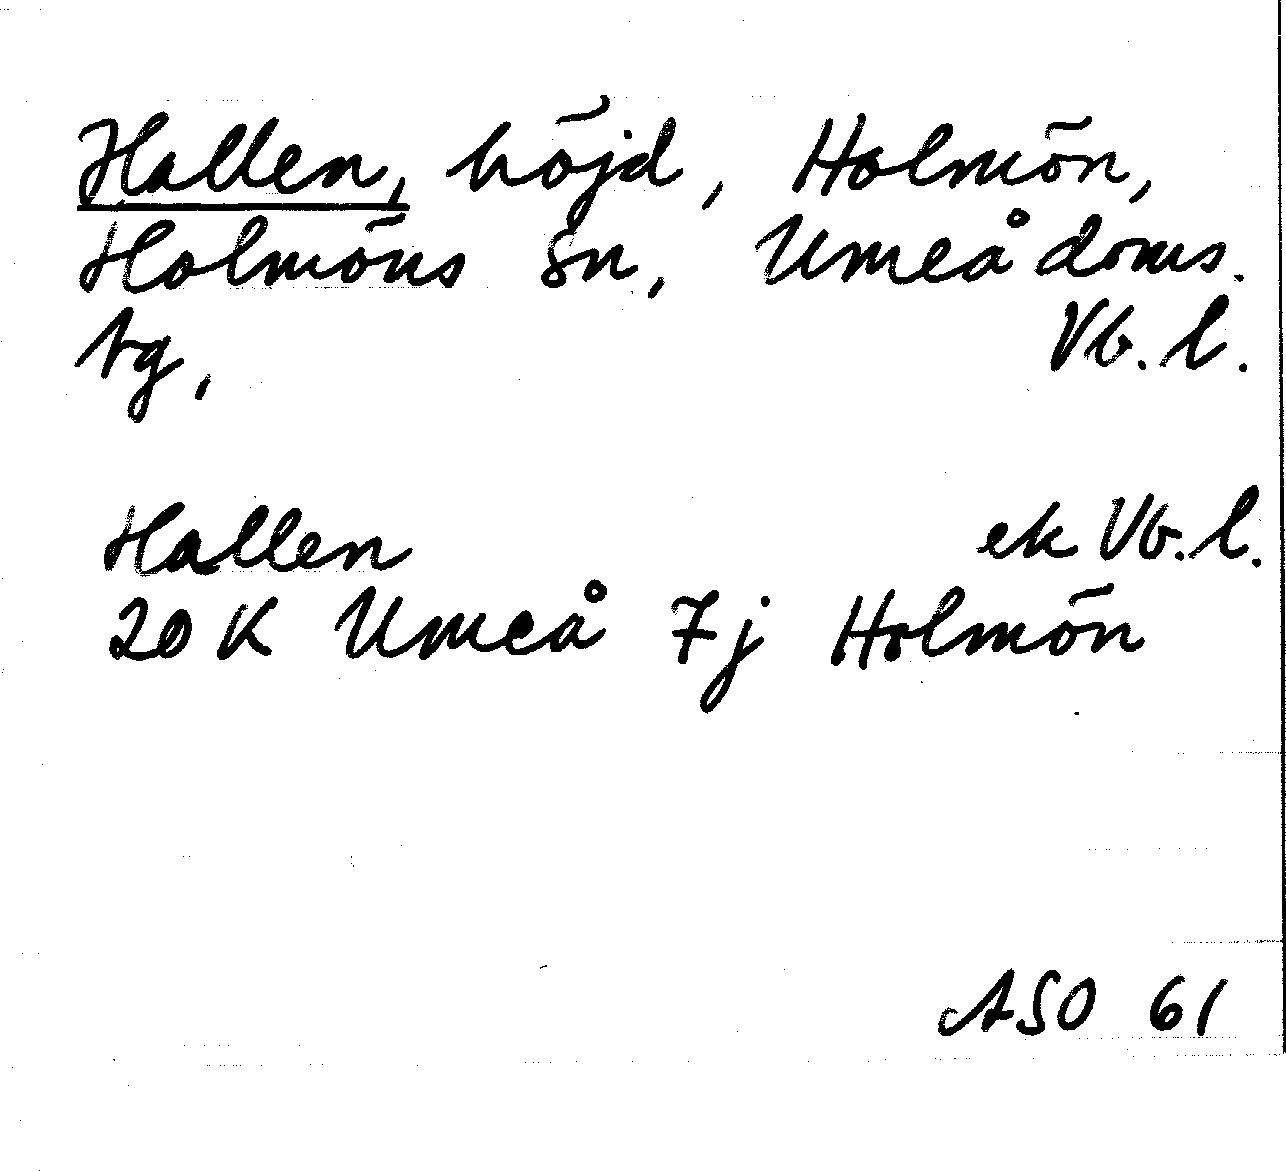 Hallen, höjd, Holmön,
Holmöns sn, Umeå doms.
tg, Vb. l.
Hallen ek Vb. l.
20 K Umeå 7j Holmön
ASO 61